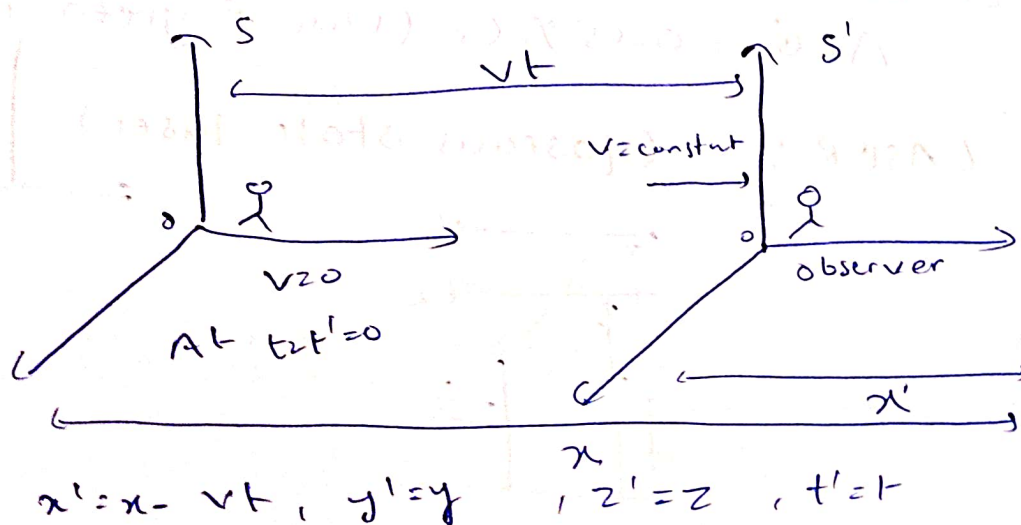 S
S'
vt
v=constnt
o
o
v=0
observer
At t=t'=0
x'
x
x'=x- vt, y'=y , z'=z , t'=t